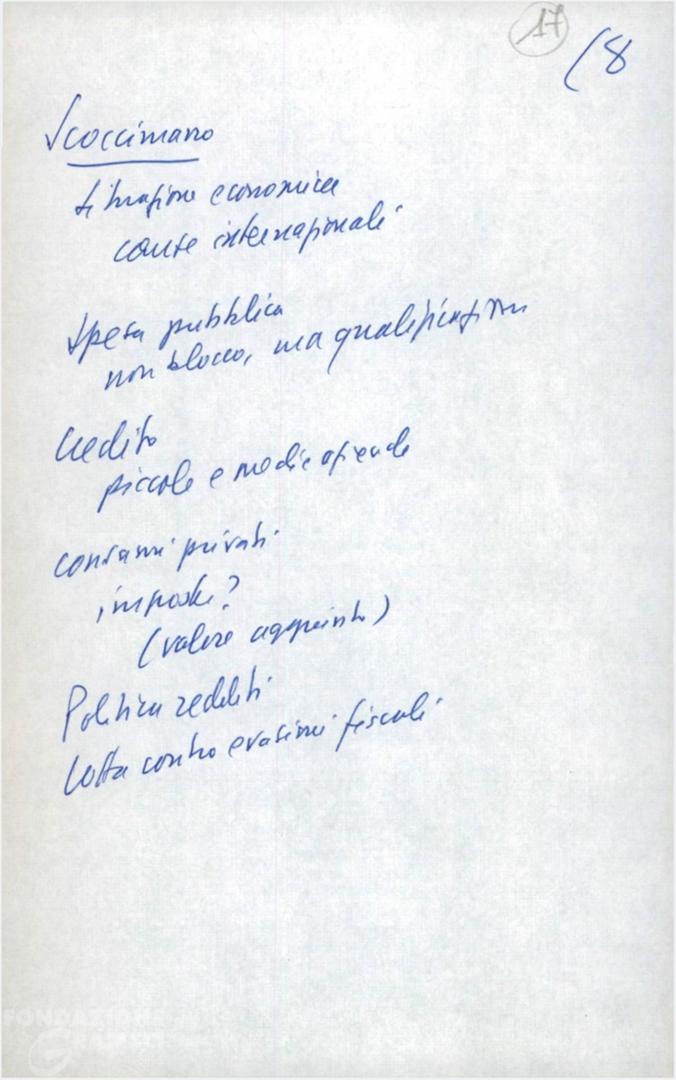 17
(8
Scoccimarro
situazione economica
cause internazionali
Spesa pubblica
non blocco, ma qualificazione
Credito
piccole e medie aziende
consumi privati
imposte?
(valore aggiunto)
Politica redditi
lotta contro evasioni fiscali
FONDAZIONE